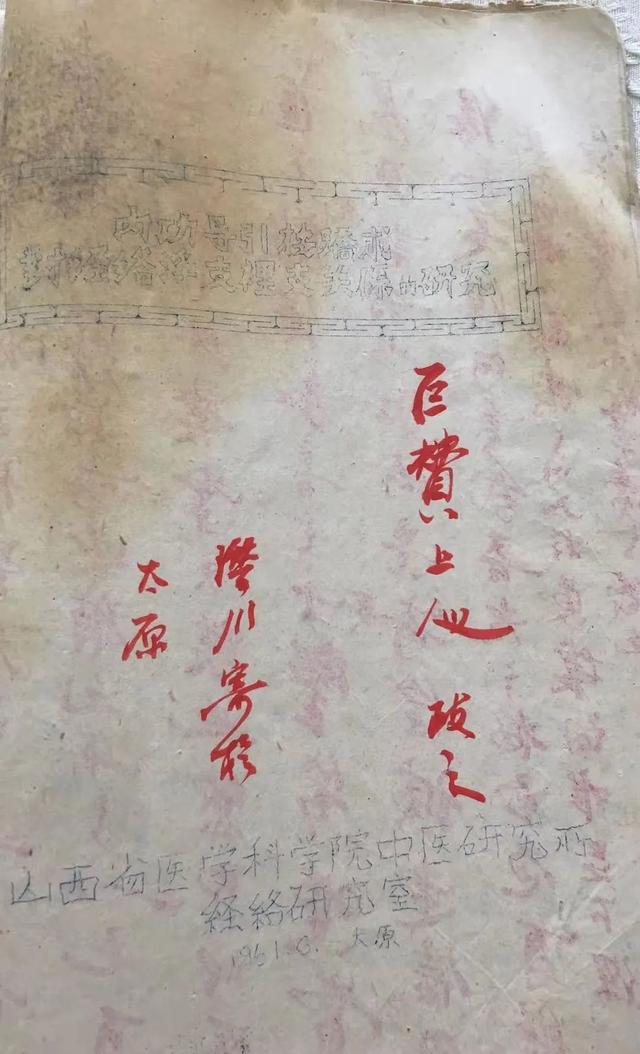 内功导引按蹻术
对经络支裡支关係的研究
巨贊上人 政之
潛川寄於
太原
山西省医学科学院中医研究所
経絡研究室
1961.6. 太原